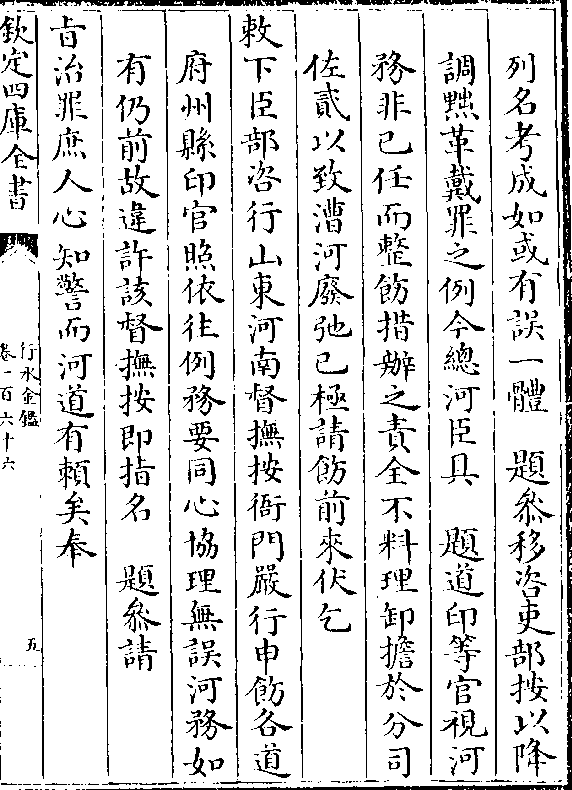 列名考成如或有誤一體　題叅移咨吏部按以降
調黜革戴罪之例今總河臣具　題道印等官視河
務非已任而整飭措辦之責全不料理卸擔於分司
佐貳以致漕河廢弛已極請飭前來伏乞
敕下臣部咨行山東河南督撫按衙門嚴行申飭各道
府州縣印官照依往例務要同心協理無誤河務如
有仍前故違許該督撫按即指名　題叅請
㫖治罪庶人心知警而河道有賴矣奉
欽定四庫全書
行水金鑑
卷一百六十六
五